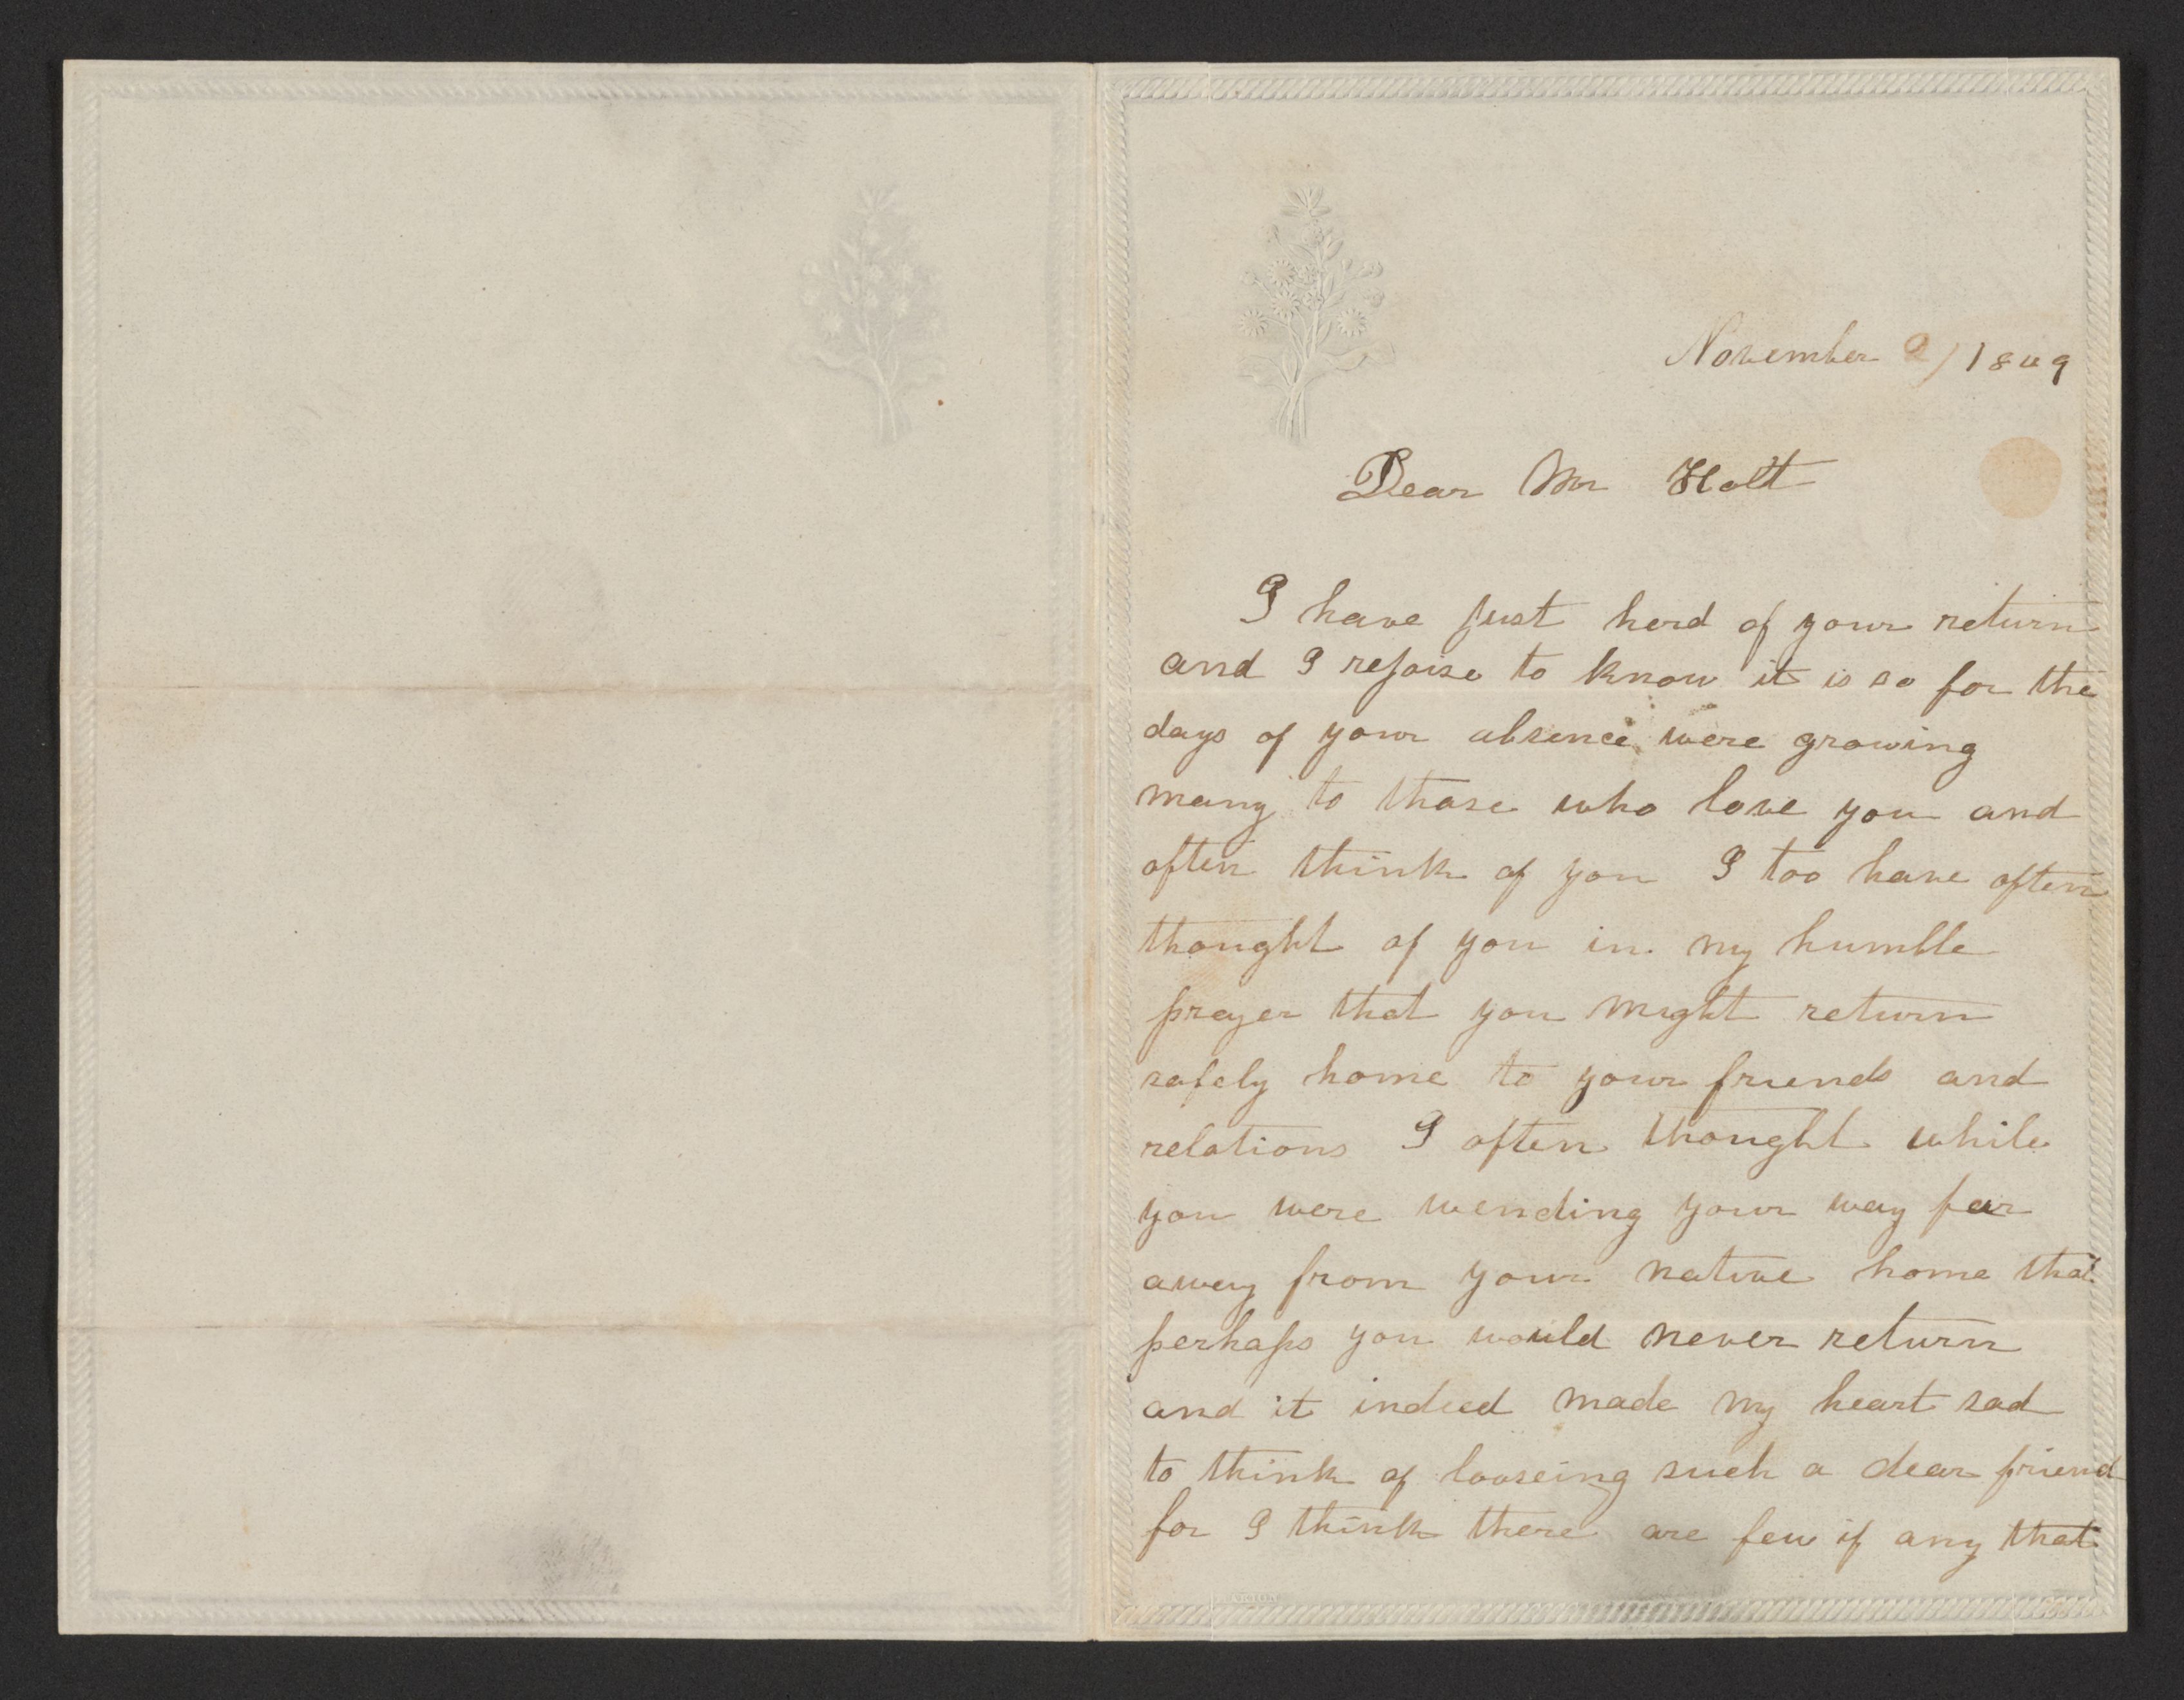 November 9/ 1849
Dear Mr Holt
I have just herd of your return
and I rejoise to know it is so for the
days of your absence were growing
many to those who love you and
often think of you I too have often
thought of you in my humble
prayer that you might return
safely home to your friends and
relations I often thought while
you were wending your way far
away from your native home that
perhaps you would never return
and it indeed made my heart sad
to think of looseing such a dear friend
for I think there are few if any that